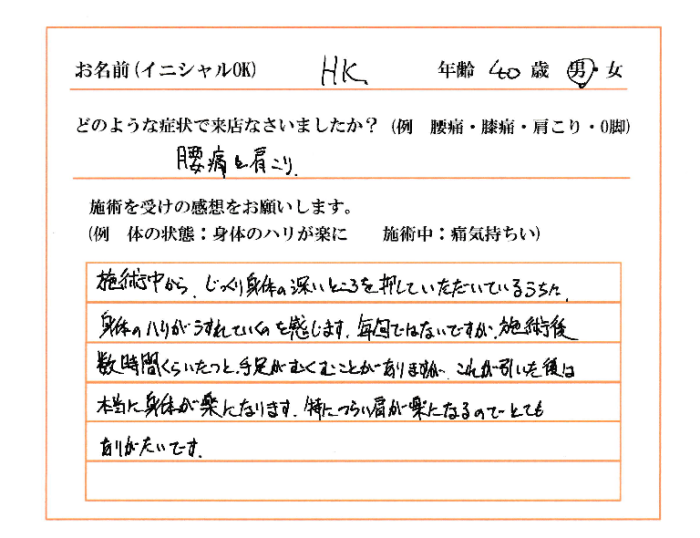 お名前(イニシャルOK) HK 年齢 40 歳 男・女
どのような症状で来店なさいましたか？(例 腰痛・膝痛・肩こり・O脚)
腰痛と肩こり.
施術を受けの感想をお願いします。
(例 体の状態：身体のハリが楽に 施術中：痛気持ちい)
施術中から、じっくり身体の深いところを押していただいているうちに、
身体のハリがうすれていくのを感じます. 毎回ではないですが、施術後
数時間くらいたつと、手足がむくむことがありますが、これが引いた後は
本当に身体が楽になります. 特につらい肩が楽になるのでとても
ありがたいです.